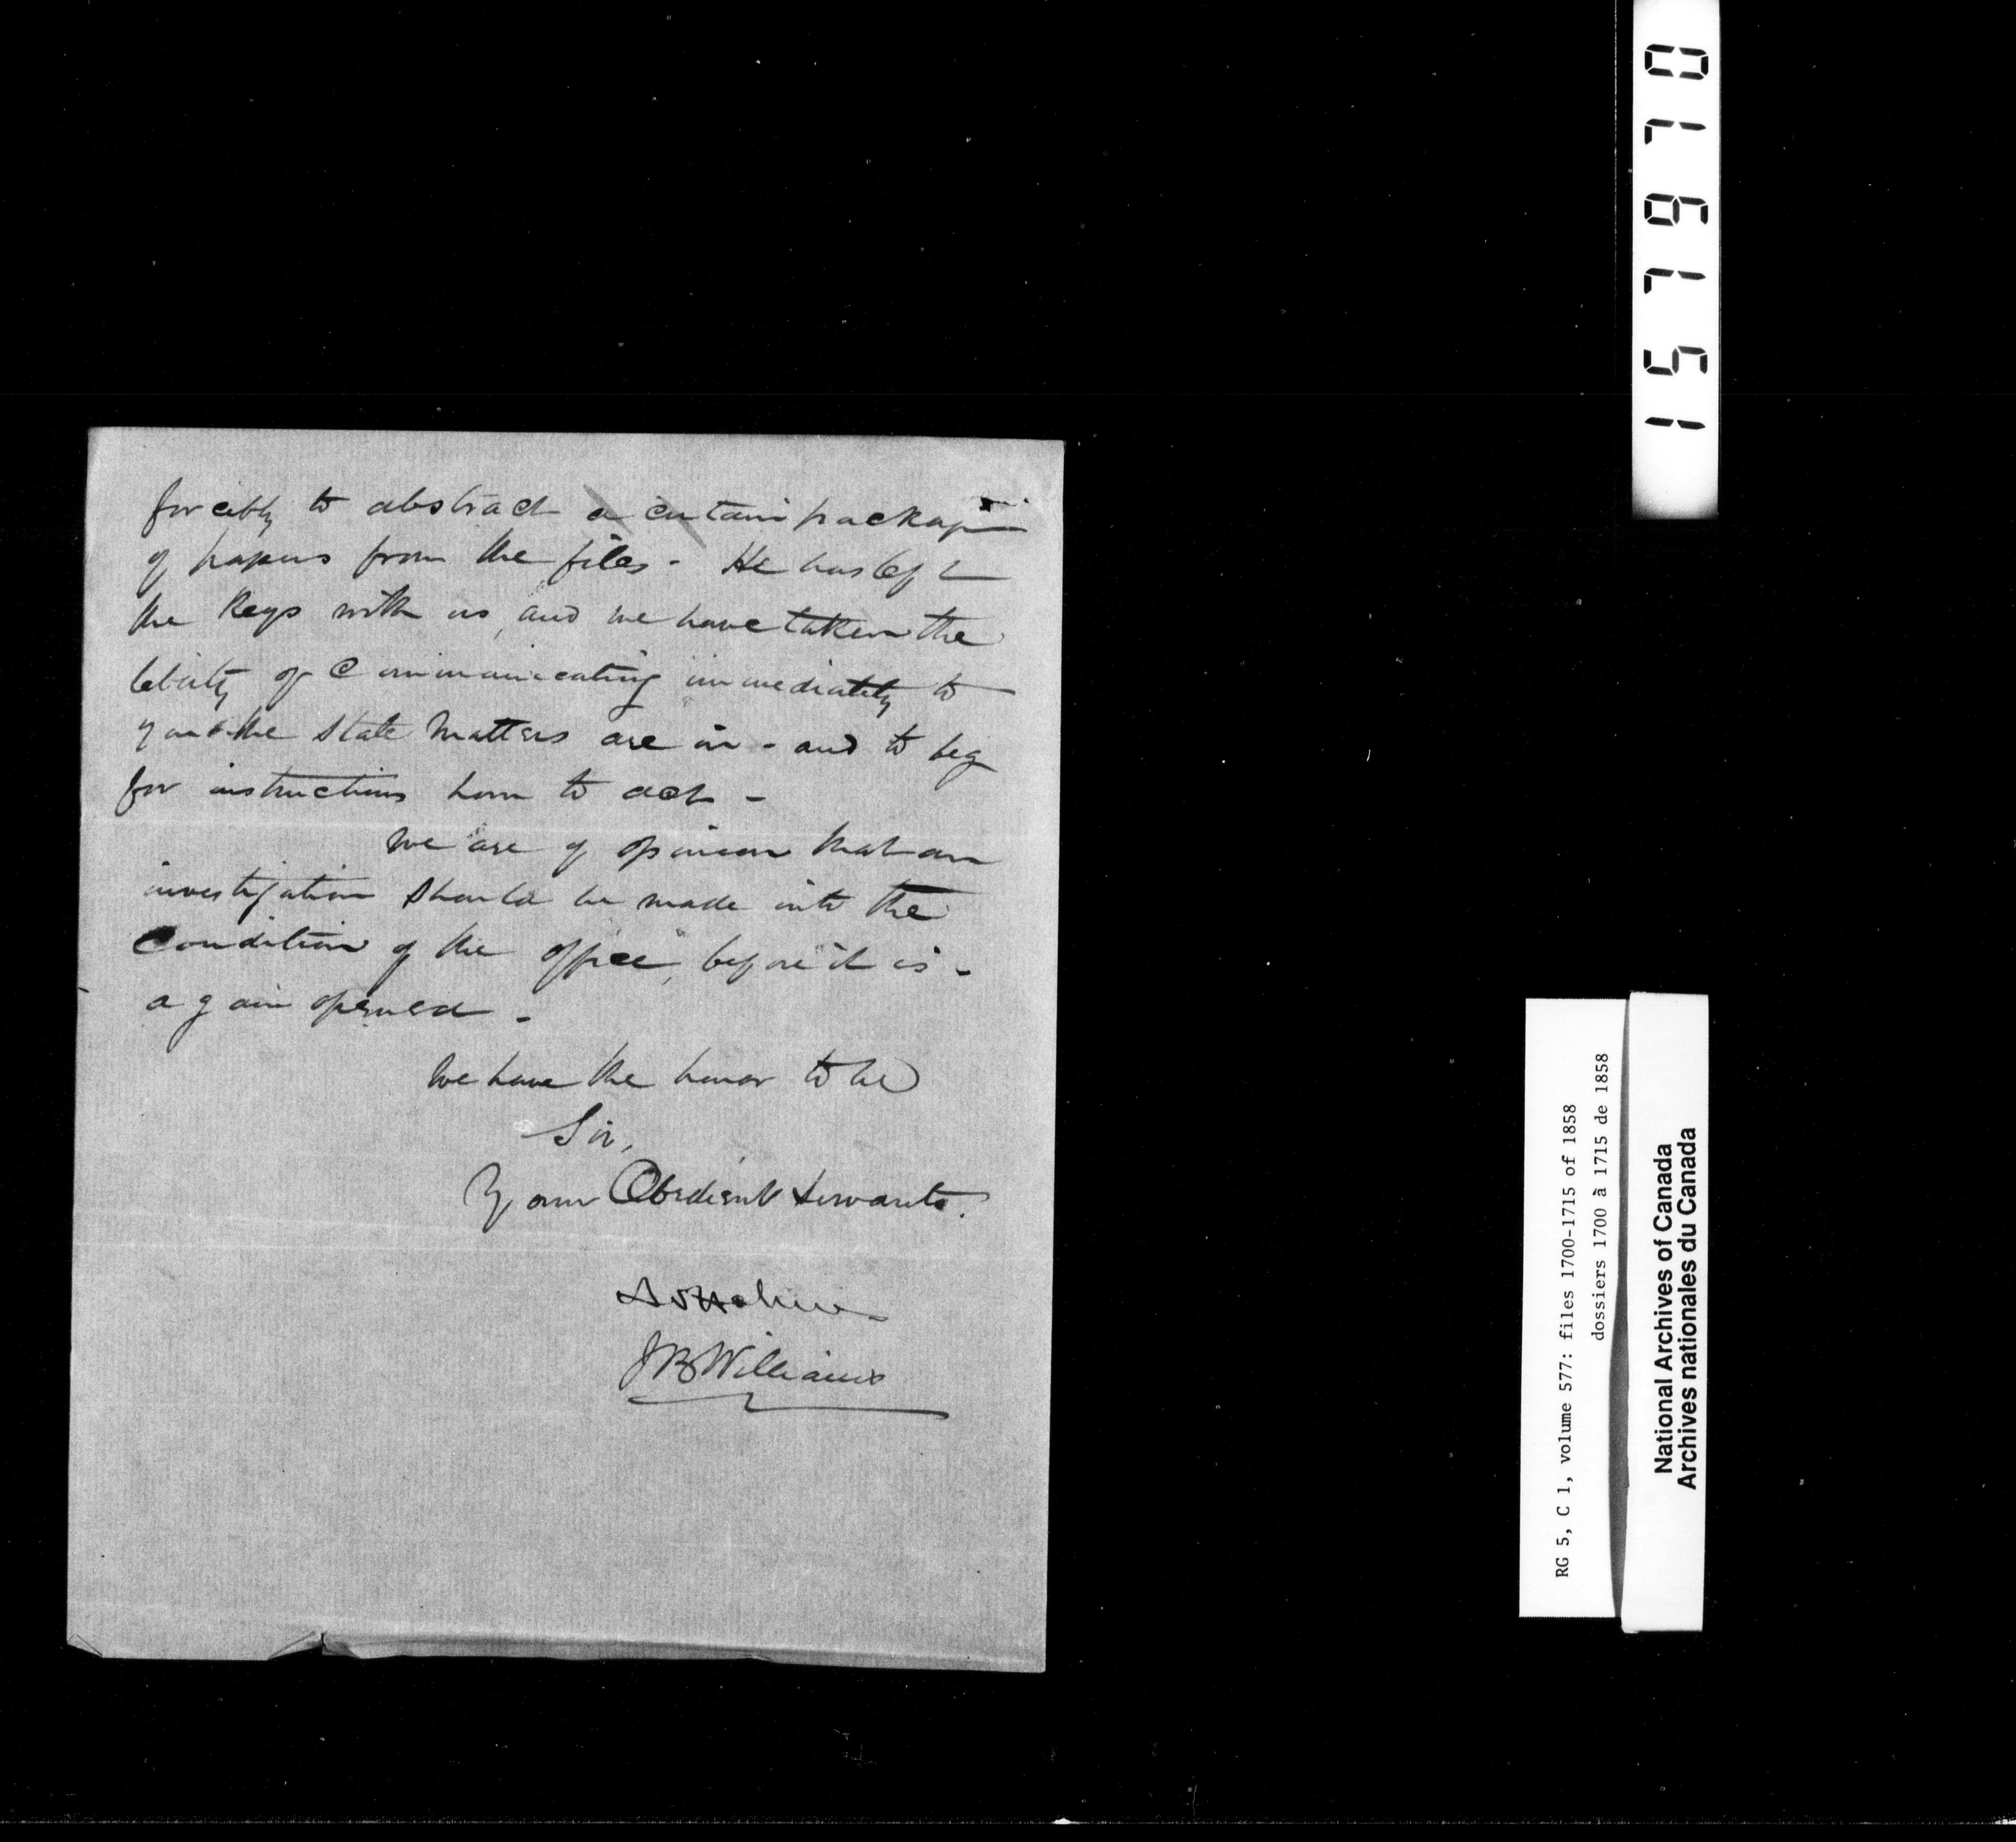 forcibly to abstract a certain package
of papers from the files - He has left
the Keys with us, and we have taken the
liberty of Communicating immediately to
you the state matters are in - and to beg
for instructions how to act -
We are of opinion that an
investigation should be made into the
Condition of the office, before it is -
again opened -
We have the honor to be
Sir,
Your Obedient Servants.
JBWilliams
01767151
RG 5, C 1, volume 577: files 1700-1715 of 1858
dossiers 1700 à 1715 de 1858
National Archives of Canada
Archives nationales du Canada